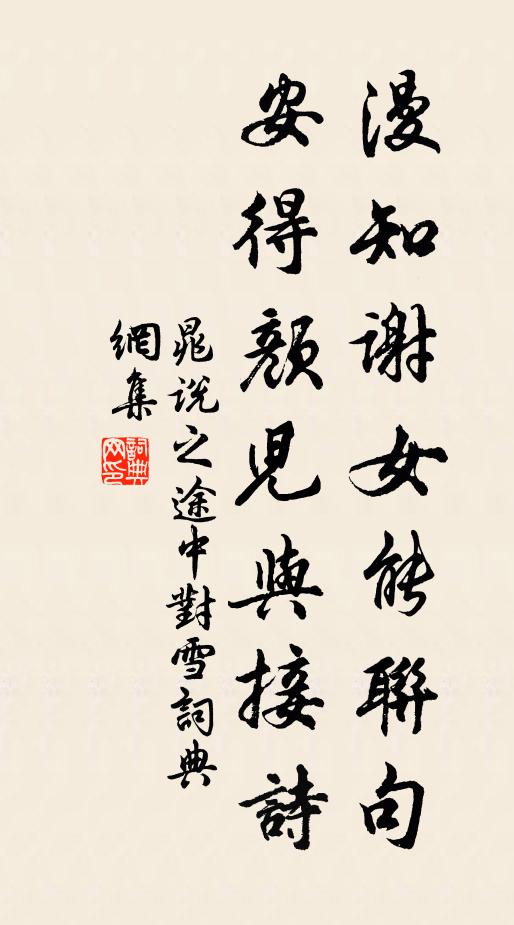 漫知謝女能聯句
安得顏兒與接詩
晁說之途中對雪詞典
網集
詞典網印